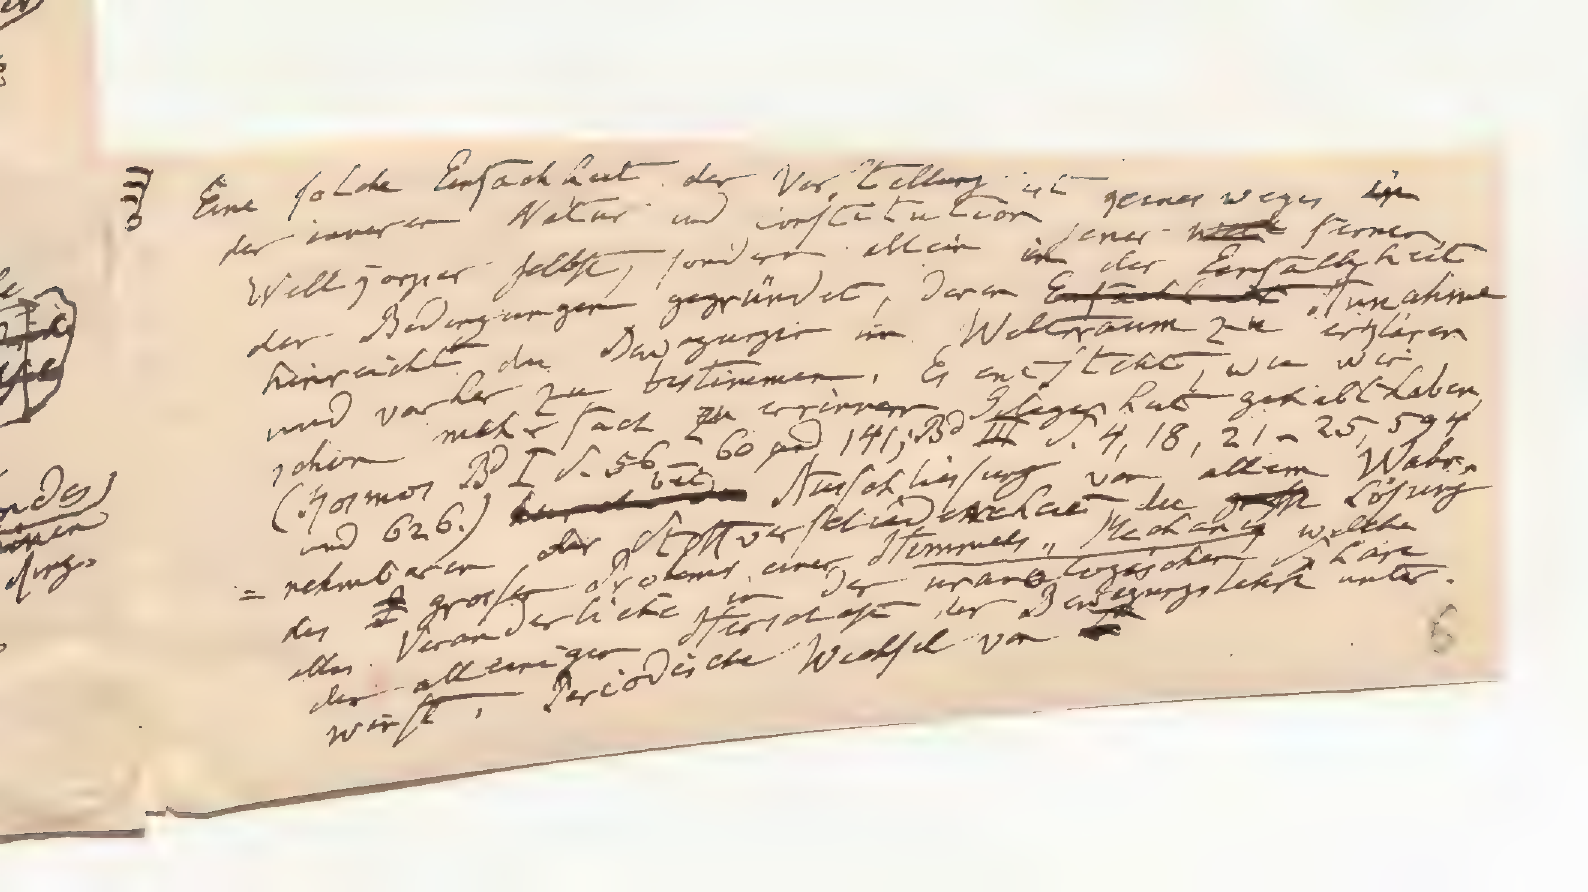 Eine solche Einfachheit der Vorstellung ist keinesweges in
der inneren Natur und Constitution jener fernen
Weltkörper selbst, sondern allein in der Einfachheit
der Bedingungen gegründet, deren Annahme
hinreicht die Bewegungen im Weltraum zu erklären
und vorher zu bestimmen. Es entsteht, wie wir
schon mehrfach zu erinnern Gelegenheit gehabt haben,
(Kosmos Bd I S. 56–60 und 141; Bd III S. 4, 18, 21–25, 594
und 626.) bei Ausschliessung von allem Wahr-
=nehmbaren der Stoffverschiedenheit die Lösung
des grossen Problems einer Himmels-Mechanik welche
alles Veränderliche in der uranologischen Sphäre
der alleinigen Herrschaft der Bewegungslehre unter-
wirft. Periodische Wechsel von
6